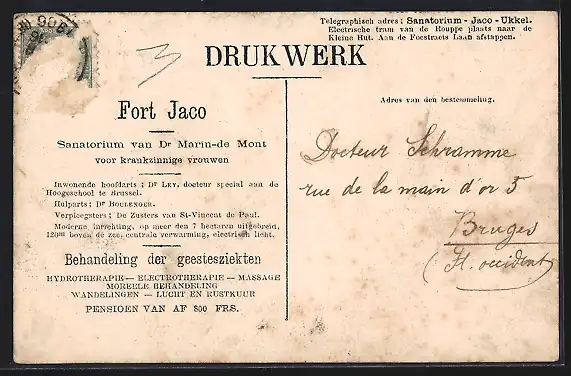 Telegraphisch adres; Sanatorium - Jaco - Ukkel.
Electrische tram van de Rouppe plaats naar de
Kleine Hut. Aan de Foestraets Laan afstappen.
DRUKWERK
3
Fort Jaco
Sanatorium van Dr Marin-de Mont
voor krankzinnige vrouwen
Inwonende hoofdarts; Dr LEY, docteur special aan de
Hoogeschool te Brussel.
Hulparts; Dr BOULENGER.
Verpleegsters; De Zusters van St-Vincent de Paul.
Moderne inrichting, op meer den 7 hectaren uitgebreid,
120m boven de zee, centrale verwarming, electrisch licht.
Behandeling der geestesziekten
HYDROTHERAPIE — ELECTROTHERAPIE — MASSAGE
MOREELE BEHANDELING
WANDELINGEN — LUCHT EN RUSTKUUR
PENSIOEN VAN AF 800 FRS.
Adres van den bestemmeling.
Docteur Schramme
rue de la main d'or 5
Bruges
(Fl. occident)